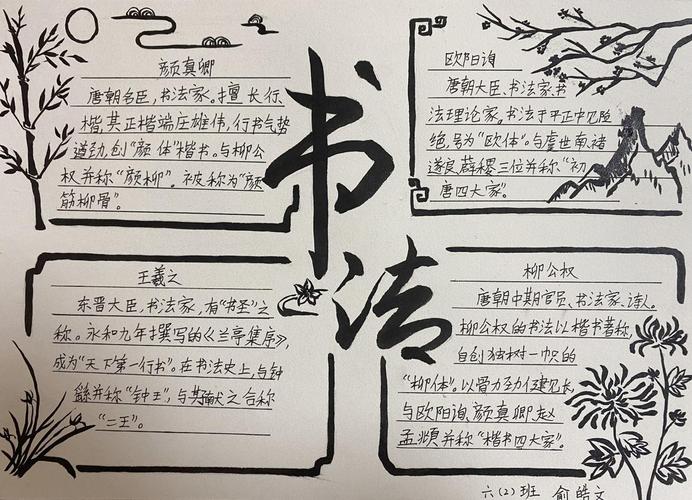 书法
颜真卿
唐朝名臣，书法家。擅长行
楷，其正楷端庄雄伟，行书气势
遒劲，创“颜体”楷书。与柳公
权并称“颜柳”。被称为“颜
筋柳骨”。
欧阳询
唐朝大臣、书法家、书
法理论家，书法于平正中见险
绝，号为“欧体”。与虞世南、诸
遂良、薛稷三位并称“初
唐四大家”。
王羲之
东晋大臣，书法家，有“书圣”之
称。永和九年撰写的《兰亭集序》，
成为“天下第一行书”。在书法史上，与钟
繇并称“钟王”，与其献之合称
“二王”。
柳公权
唐朝中期官员、书法家、诗人。
柳公权的书法以楷书著称，
自创独树一帜的
“柳体”。以骨力劲健见长，
与欧阳询、颜真卿、赵
孟頫并称“楷书四大家”。
六(2)班 俞皓文